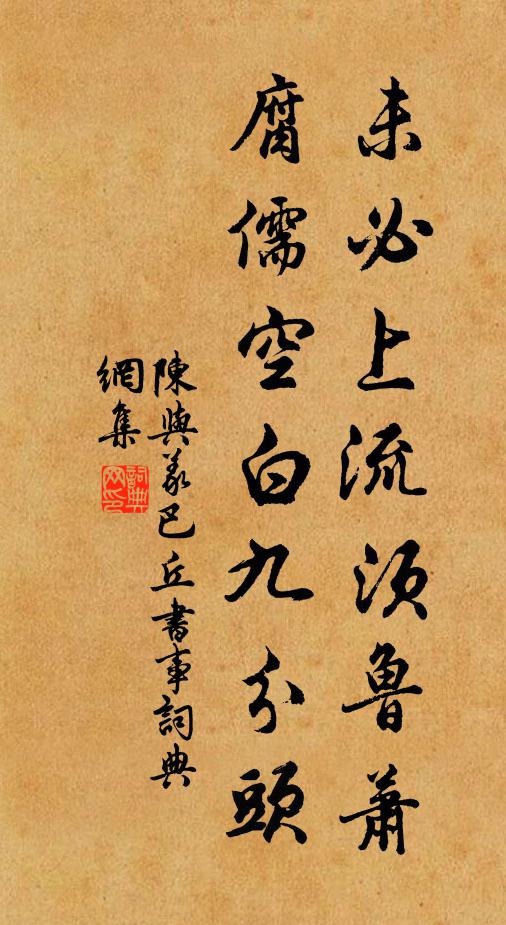 未必上流須魯蕭
腐儒空白九分頭
陳與義巴丘書事詞典
網集
詞典網印